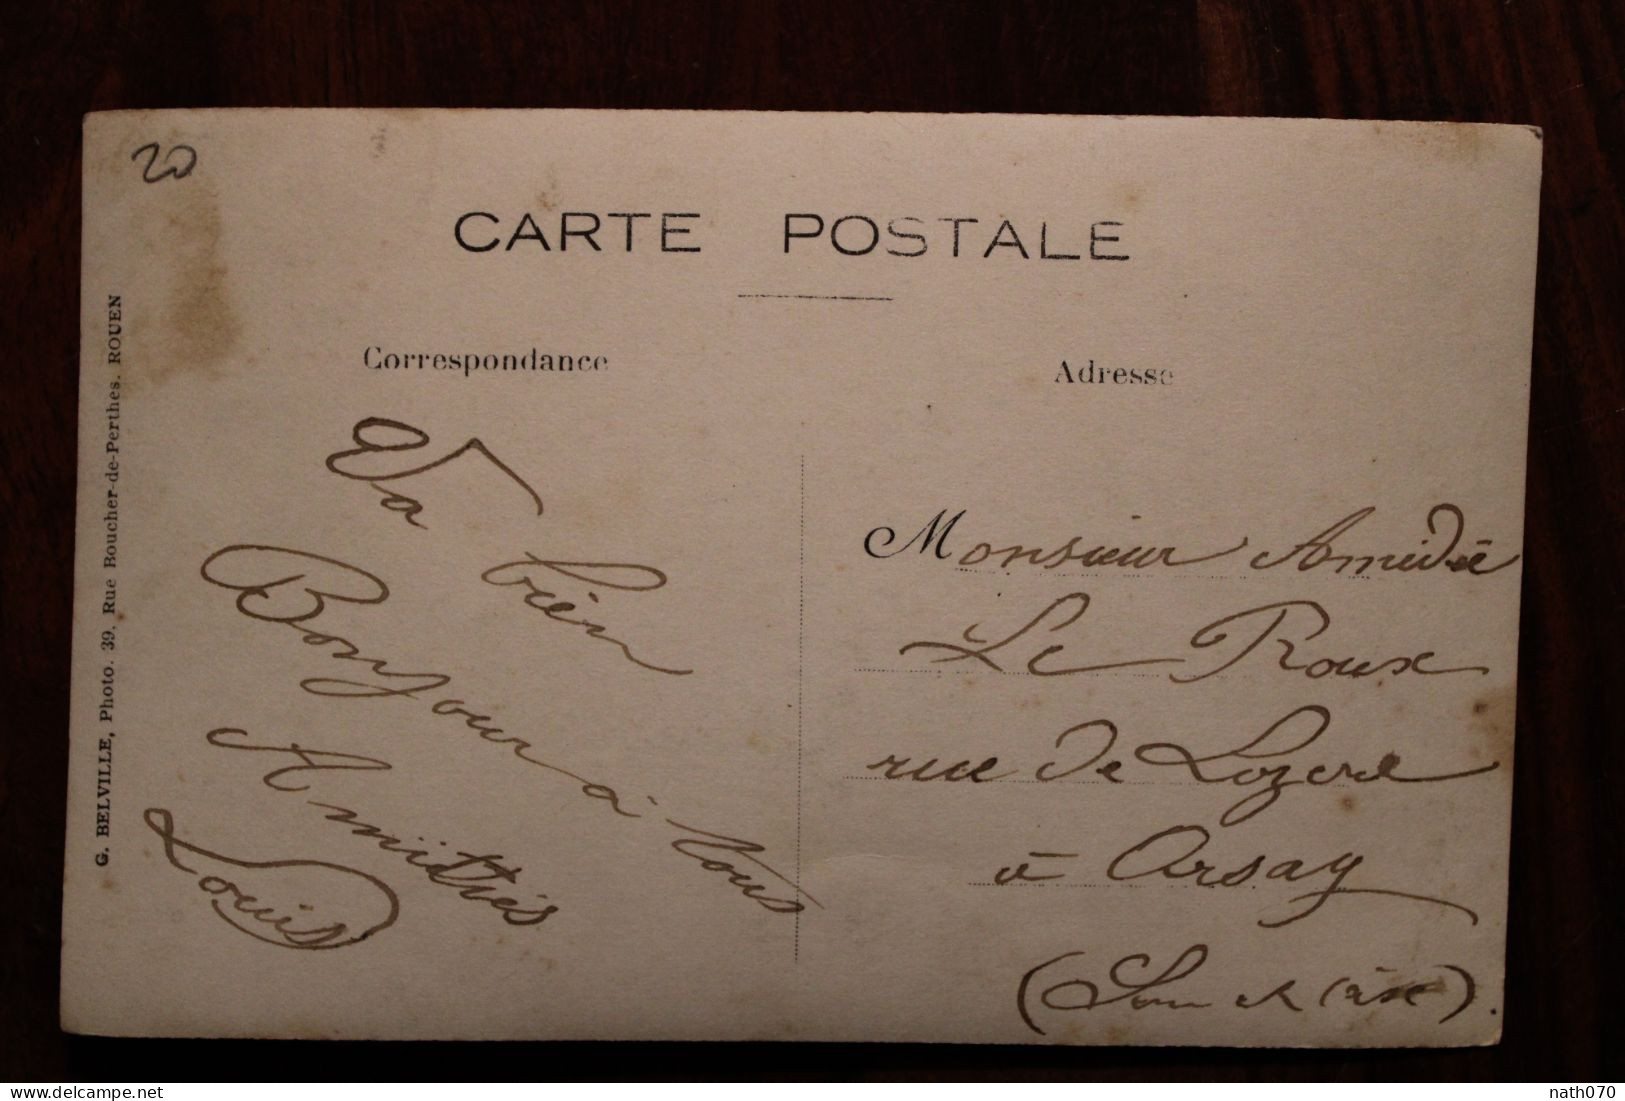 20
CARTE POSTALE
Correspondance
Adresse
G. BELVILLE, Photo. 39, Rue Boucher-de-Perthes. ROUEN
Va
bien
Bonjour à tous
Amitiés
Louis
Monsieur Amédée
Le Roux
rue de Lozere
à Orsay
(Seine et Oise).
delcampe.net
nath070